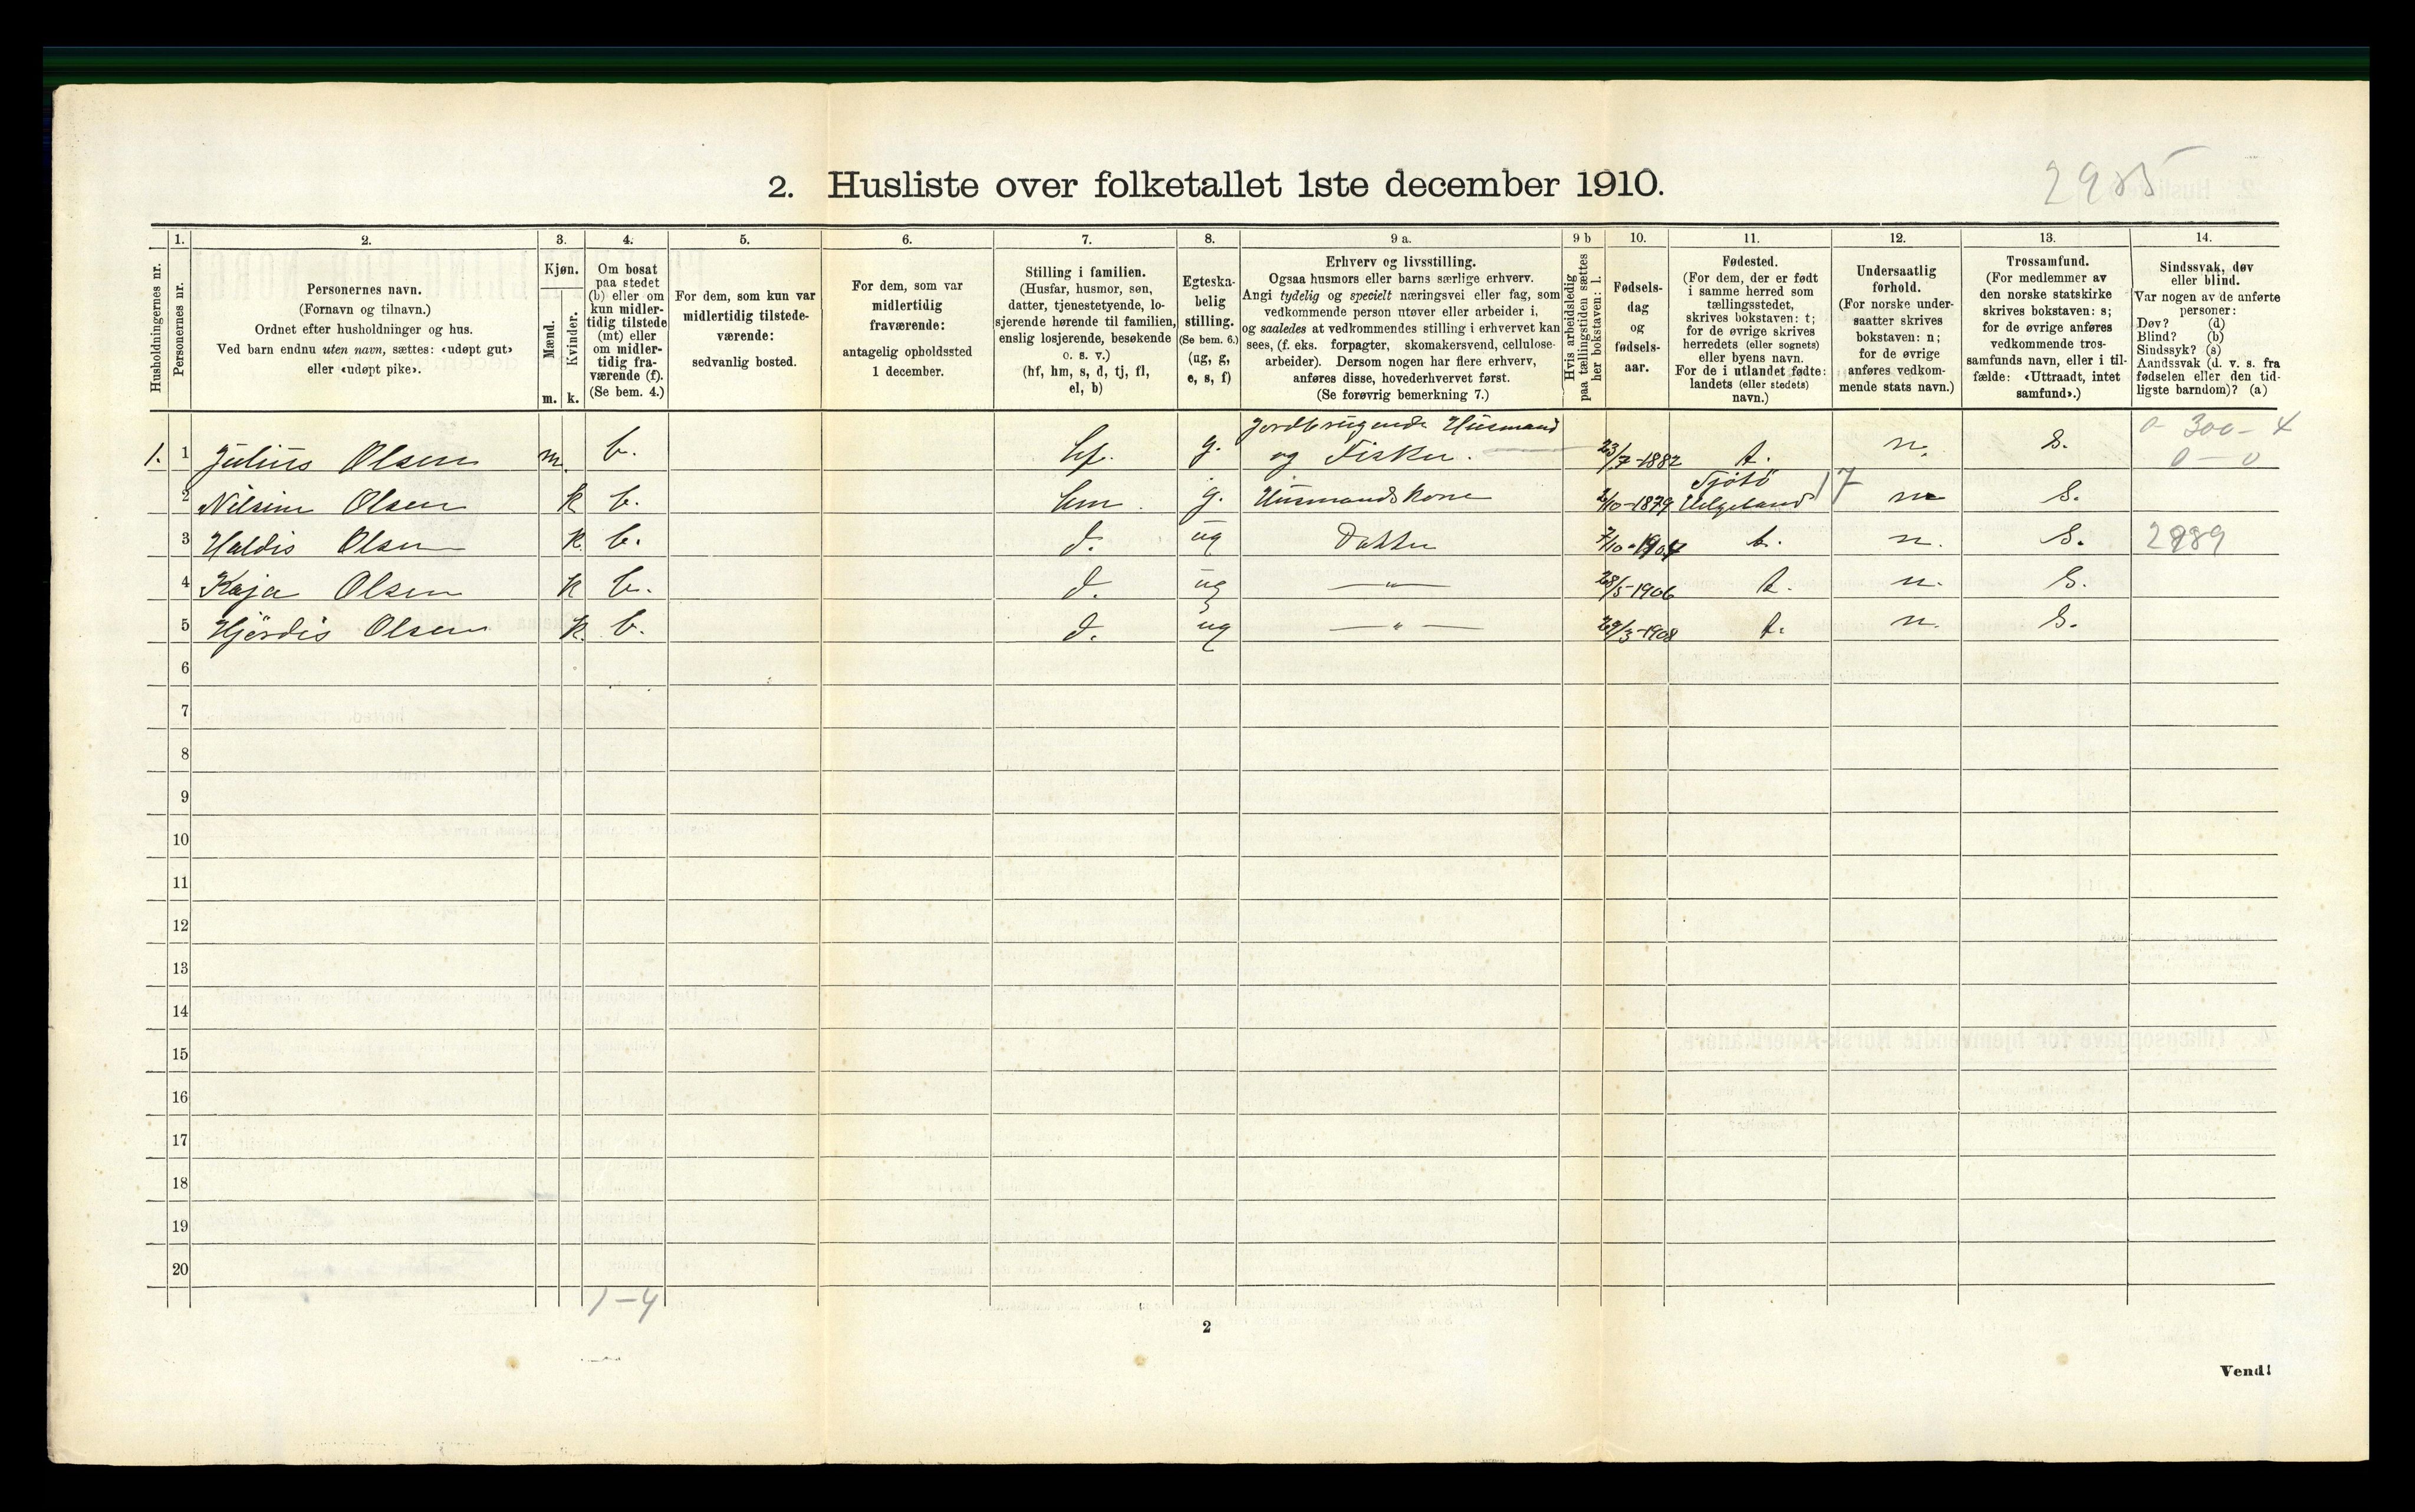 2985
2. Husliste over folketallet 1ste december 1910.
Husholdningernes nr.
1.
Personernes nr.
2.
Personernes navn.
(Fornavn og tilnavn.)
Ordnet efter husholdninger og hus.
Ved barn endnu uten navn, sættes: «udøpt gut»
eller «udøpt pike».
3.
Kjøn.
Mænd.
Kvinder.
m. k.
4.
Om bosat
paa stedet
(b) eller om
kun midler-
tidig tilstede
(mt) eller
om midler-
tidig fra-
værende (f).
(Se bem. 4.)
5.
For dem, som kun var
midlertidig tilstede-
værende:
sedvanlig bosted.
6.
For dem, som var
midlertidig
fraværende:
antagelig opholdssted
1 december.
7.
Stilling i familien.
(Husfar, husmor, søn,
datter, tjenestetyende, lo-
sjerende hørende til familien,
enslig losjerende, besøkende
o. s. v.)
(hf, hm, s, d, tj, fl,
el, b)
8.
Egteska-
belig
stilling.
(Se bem. 6.)
(ug, g,
e, s, f)
9 a.
Erhverv og livsstilling.
Ogsaa husmors eller barns særlige erhverv.
Angi tydelig og specielt næringsvei eller fag, som
vedkommende person utøver eller arbeider i,
og saaledes at vedkommendes stilling i erhvervet kan
sees, (f. eks. forpagter, skomakersvend, cellulose-
arbeider). Dersom nogen har flere erhverv,
anføres disse, hovederhvervet først.
(Se forøvrig bemerkning 7.)
9 b
Hvis arbeidsledig
paa tællingstiden sættes
her bokstaven: l.
10.
Fødsels-
dag
og
fødsels-
aar.
11.
Fødested.
(For dem, der er født
i samme herred som
tællingsstedet,
skrives bokstaven: t;
for de øvrige skrives
herredets (eller sognets)
eller byens navn.
For de i utlandet fødte:
landets (eller stedets)
navn.)
12.
Undersaatlig
forhold.
(For norske under-
saatter skrives
bokstaven: n;
for de øvrige
anføres vedkom-
mende stats navn.)
13.
Trossamfund.
(For medlemmer av
den norske statskirke
skrives bokstaven: s;
for de øvrige anføres
vedkommende tros-
samfunds navn, eller i til-
fælde: «Uttraadt, intet
samfund».)
14.
Sindssvak, døv
eller blind.
Var nogen av de anførte
personer:
Døv? (d)
Blind? (b)
Sindssyk? (s)
Aandssvak (d. v. s. fra
fødselen eller den tid-
ligste barndom)? (a)
Jordbrugende Husmand 0 - 300 - 4
1. 1 Julius Olsen m. b. hf. g. og Fisker. 23/7-1882 t. n. S. 0 - 0
Tjötö 17
2 Nilsine Olsen k b. hm. g. Husmandskone /10-1879 Helgeland n S.
3 Haldis Olsen k. b. d. ug Datter 7/10-1904 t. n. S. 2989
4 Kaja Olsen k b. d. ug — " — 28/5-1906 t. n. S.
5 Hjördis Olsen k. b. d. ug — " — 29/3-1908 t. n. S.
6
7
8
9
10
11
12
13
14
15
16
17
18
19
20
1-4
2
Vend!